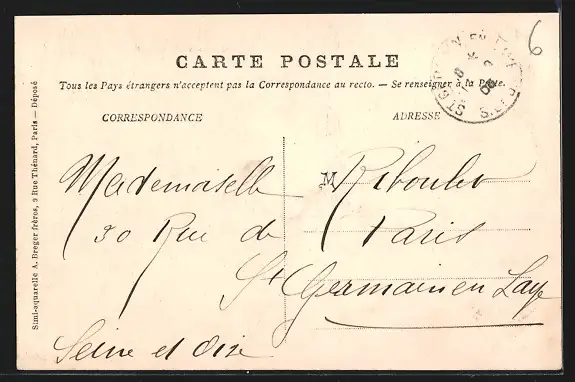 CARTE POSTALE
Tous les Pays étrangers n'acceptent pas la Correspondance au recto. — Se renseigner à la Poste.
CORRESPONDANCE
ADRESSE
Mademoiselle M Riboulet
30 Rue de Paris
St Germain en Laye
Seine et Oise
Simi-aquarelle A. Breger frères, 9 Rue Thénard, Paris — Déposé
6